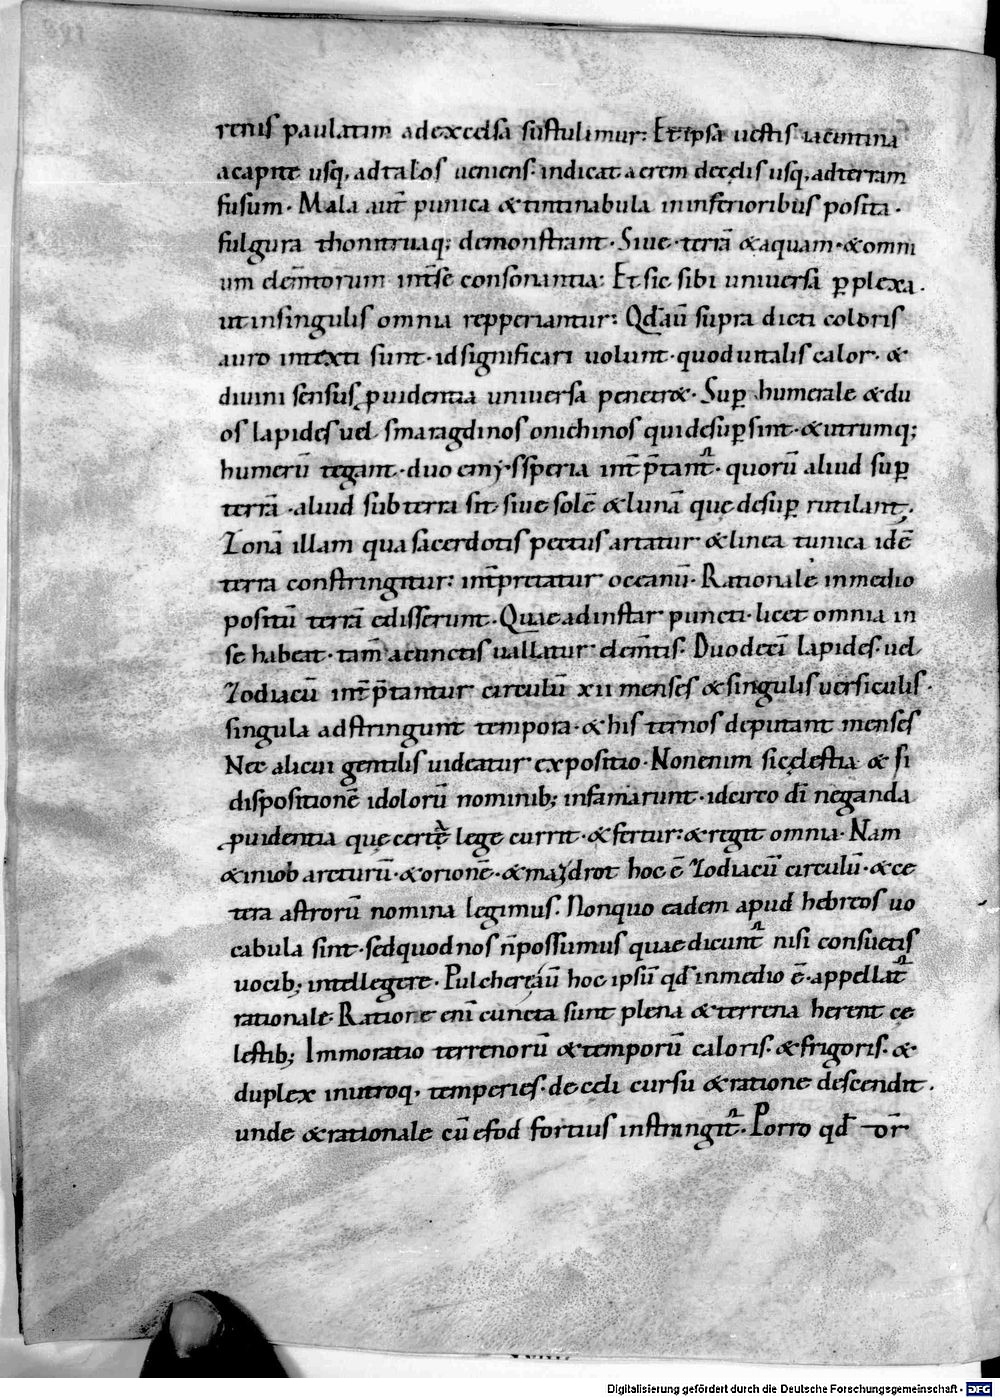 renis paulatim adexcelsa sustulimur: Et ipsa uestis iacintina
acapite usq, adtalos ueniens· indicat aerem decęlis usq, adterram
fusum· Mala aut̄ punica &tintinabula ininferioribus posita·
fulgura thonitruaq; demonstrant· Siue terrā &aquam·&omni
um elem̄torum int̄se consonantia: Et sic sibi uniuersa ꝑplexa·
ut insingulis omnia repperiantur: Qd̄aū supra dicti coloris
auro intexti sunt· idsignificari uolunt· quoduitalis calor· &
diuini sensus ꝓuidentia uniuersa penetr&· Suꝑ humerale &du
os lapides uel smaragdinos onichinos quidesuꝑ sint·&utrumq;
humerū tegant· duo emisperia int̄p̄tant᷑· quorū aliud suꝑ
terrā ·aliud subterra sit· siue solē &lunā que desuꝑ rutilant·
Zonā illam qua sacerdotis pectus artatur &linea tunica idē
terra constringitur: int̄pretatur oceanū· Rationale inmedio
positū terrā edisserunt· Quae adinstar puncti· licet omnia in
se habeat· tam̄ acunctis uallatur elem̄tis· Duodeci lapides· uel
Zodiacū int̄p̄tantur circulū xii menses &singulis uersiculis·
singula adstringunt tempora·&his ternos deputant menses
Nec alicui gentilis uideatur expositio· Nonenim sicęlestia & si
dispositionē idolorū nominib; infamarunt· idcirco dī neganda
ꝓuidentia quę certę lege currit·&fertur:&regit omnia· Nam
&iniob arcturū·&orionē·&mazdrot hoc ē Zodiacū circulū·&ce
tera astrorū nomina legimus· Nonquo eadem apud hebreos uo
cabula sint· sedquodnos n̄possumus quae dicunt᷑ nisi consuetis
uocib; intellegere· Pulchereaū hoc ipsū qd̄ inmedio ē· appellat᷑
rationale· Ratione eni cuncta sunt plena &terrena herent ce
lestib; Immoratio terrenorū &temporū caloris· &frigoris· &
duplex inutroq, temperies· deceli cursu &ratione descendit·
unde &rationale cū efod fortius instringit᷑· Porro qd̄